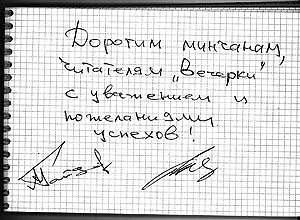 Дорогим минчанам,
читателям „Вечорки"
с уважением и
пожеланиями
успехов!